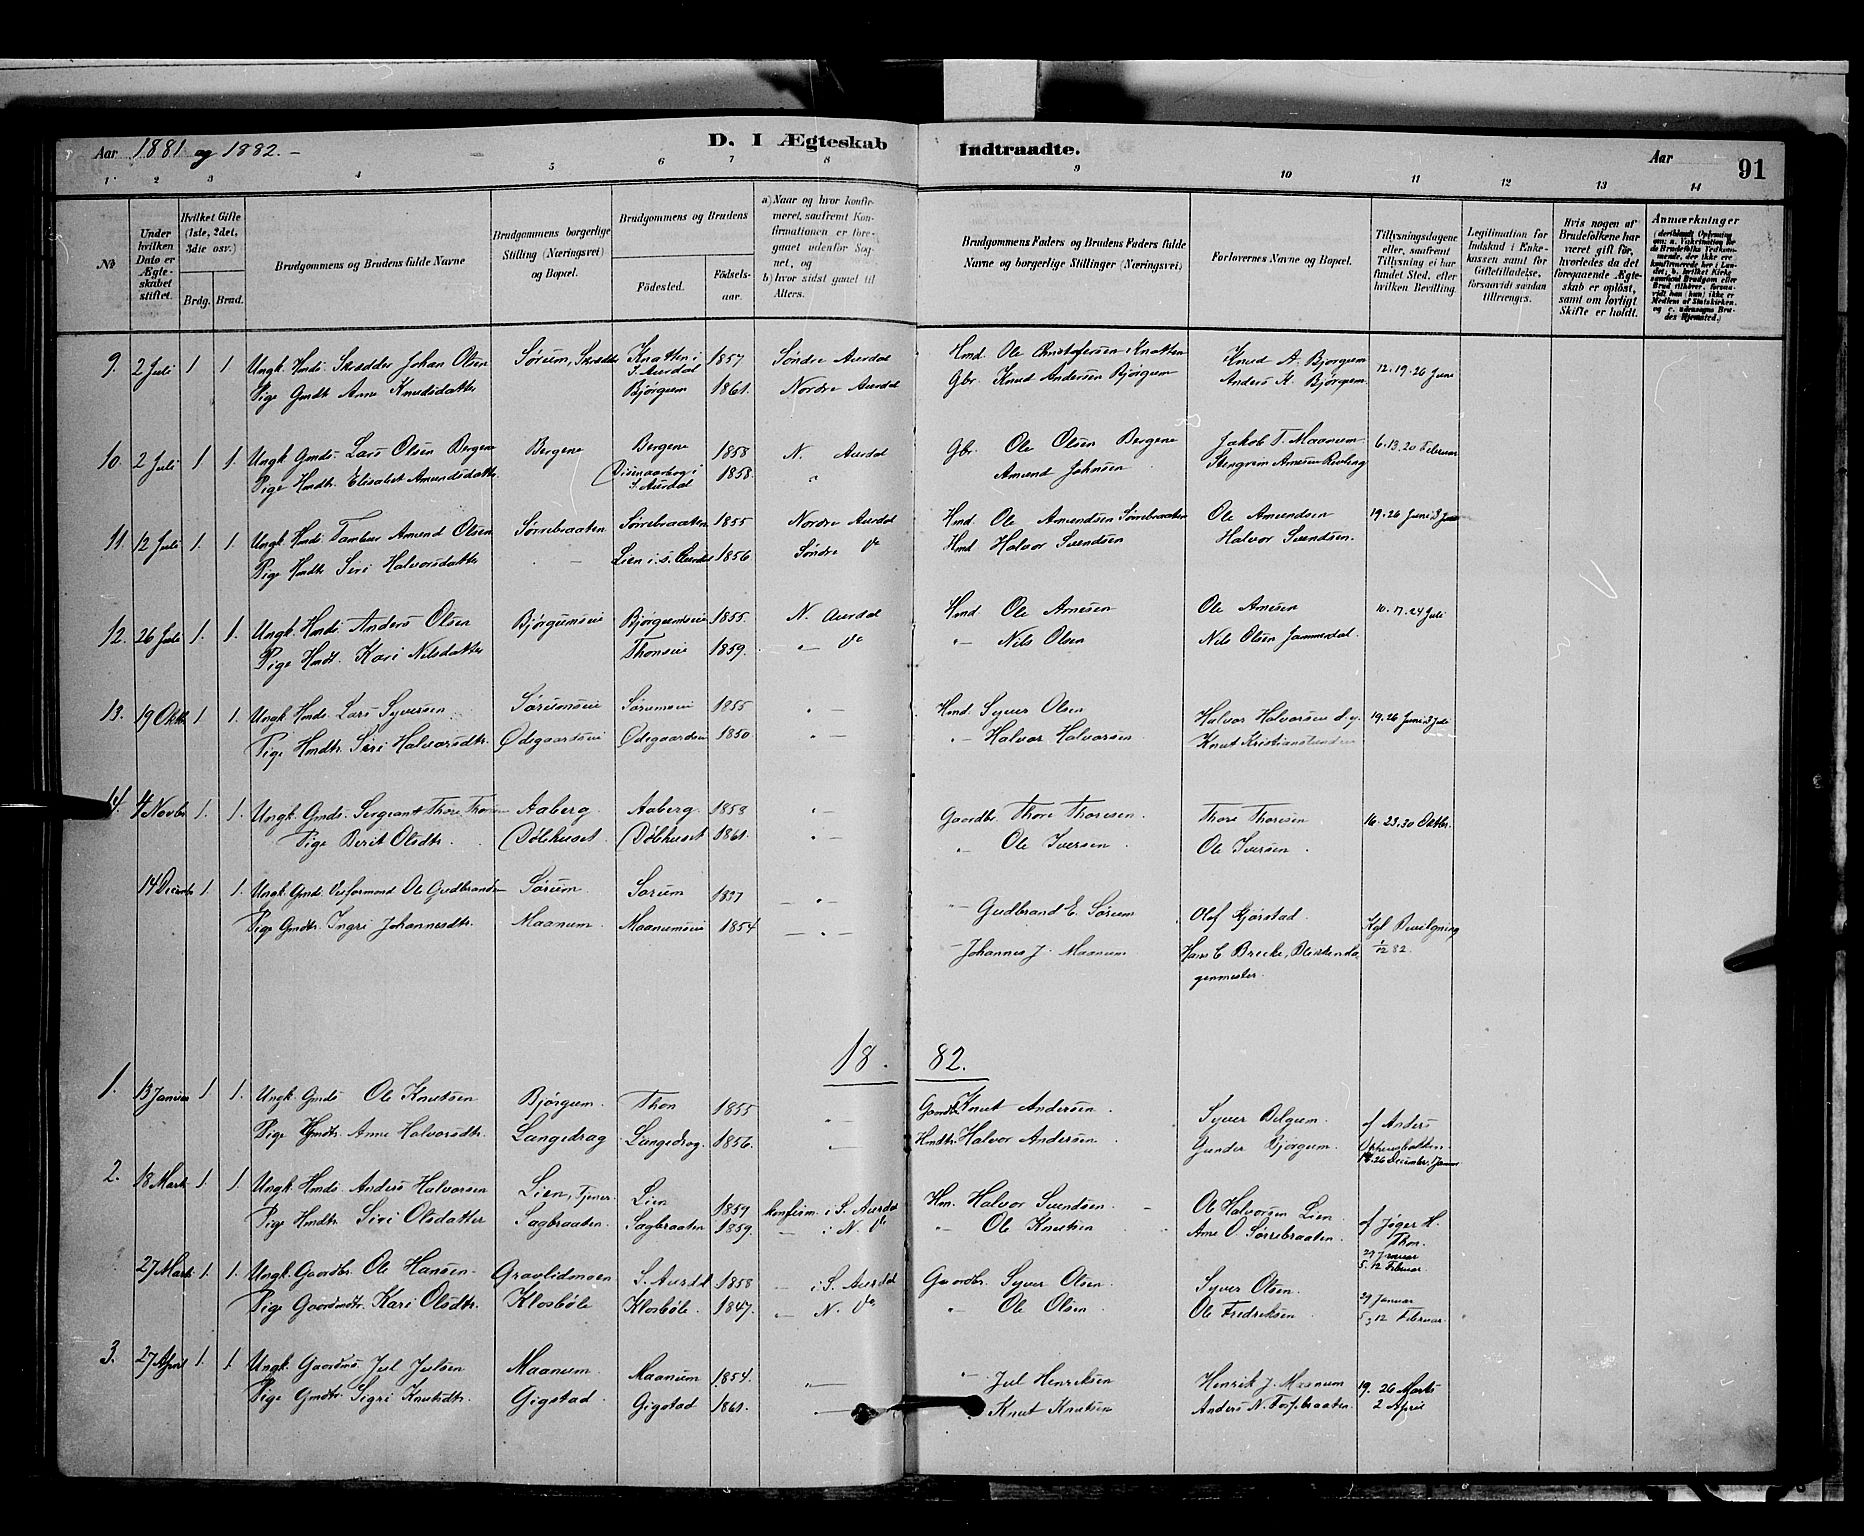 Aar 1881 og 1882. –
D. I Ægteskab Indtraadte.
Aar
91
1 2 3 4 5 6 7 8 9 10 11 12 13 14
№
Under hvilken Dato er Ægteskabet stiftet.
Hvilket Gifte (1ste, 2det, 3die osv.)
Brdg. Brud.
Brudgommens og Brudens fulde Navne
Brudgommens borgerlige Stilling (Næringsvei) og Bopæl.
Brudgommens og Brudens
Födested.
Födselsaar.
a) Naar og hvor konfirmeret, saafremt Konfirmationen er foregaaet udenfor Sognet, og
b) hvor sidst gaaet til Alters.
Brudgommens Faders og Brudens Faders fulde Navne og borgerlige Stillinger (Næringsvei)
Forlovernes Navne og Bopæl.
Tillysningsdagene eller, saafremt Tillysning ei har fundet Sted, efter hvilken Bevilling.
Legitimation for Indskud i Enkekassen samt for Giftetilladelse, forsaavidt saadan tiltrænges.
Hvis nogen af Brudefolkene har været gift för, hvorledes da det foregaaende Ægteskab er oplöst, samt om lovligt Skifte er holdt.
Anmærkninger
9. 2 Juli 1 1 Ungk. Hmds. Skrædder Johan Olsen Sørum, Skrædder Knatten i S. Aurdal 1857 Søndre Aurdal Hmd. Ole Christofersen Knatten Knud A. Bjørgum 12. 19. 26 Juni
Pige Gmdtr. Anne Knudsdatter Bjørgum 1861. Nordre Aurdal Gbr. Knud Andersen Bjørgum Anders K. Bjørgum
10. 2 Juli 1 1. Ungk. Gmds. Lars Olsen Bergene Bergene Bergene 1858 N. Aurdal Gbr. Ole Olsen Bergene Jakob T. Maanum 6. 13. 20 Februar
Pige Hmdtr. Elisabet Amundsdatter S. Aurdal 1858. " Amund Johnsen Stengrim Arnesen
11. 12 Juli 1. 1. Ungk. Hmds. Tambur Amund Olsen Sørrebraaten Sørrebraaten 1855 Nordre Aurdal Hmd. Ole Amundsen Sørrebraaten Ole Amundsen 19. 26 Juni 3 Juli
Pige Hmdtr. Siri Halvorsdatter – Lien i S. Aurdal 1856 Søndre do Hmd Halvor Svendsen Halvor Svendsen.
12. 26 Juli 1. 1. Ungk. Hmds. Anders Olsen Bjørgumseie Bjørgumseie 1855. N. Aurdal Hmd Ole Arnesen Ole Arnesen 10. 17. 24 Juli
Pige Hmdt. Kari Nilsdatter Thonseie 1859. " do " Nils Olsen Nils Olsen Jammerdal.
13. 19 Oktb. 1 1. Ungk. Hmds. Lars Syversen Sørumseie Sørumseie 1855 " – Hmd Syver Olsen Halvor Halvorsen d.y. 19. 26 Juni 3 Juli
Pige Hmdtr. Siri Halvorsdtr. Ødegaardseie Ødegaardseie 1850. " – " Halvor Halvorsen Knut Kristianslunden
14. 4 Novbr 1. 1. Ungk. Gmds. Sergeant Thore Thoresen Aaberg. Aaberg. 1858 " – Gaardbr. Thore Thoresen. Thore Thoresen 16. 23. 30 Oktbr.
Pige Berit Olsdtr. Dølehuset Dølehuset 1861. " – " Ole Iversen. Ole Iversen.
14 Decembr 1. 1. Ungk. Gmds. Ole Gudbrandsen Sørum. Sørum 1857 – " – " Gudbrand E. Sørum Olof Gjørstad. Kgl Bevilgning
Pige Gmdtr. Ingri Johannesdtr. Maanum. Maanumseie 1854 – " – – Johannes J. Maanum Hans C Brecke, 1/12 82.
genmester.
18. 82.
1. 13 Januar 1 1. Ungk. Gmds Ole Knutsen Bjørgum. Thon 1855 " – Gaardbr. Knut Andersen. Syver Belgum. af Anders
Pige Hmdtr. Anne Halvorsdtr. Langedrag Langedrag. 1856. " Hmdtr. Halvor Andersen. Gunder Bjørgum. 18. 26 Decembr. 1 Januar
2. 18 Marts 1. 1. Ungk. Hmds. Anders Halvorsen Lien, Tjener. Lien 1859 konfirm. i S. Aurdal Hm. Halvor Svendsen Ole Halvorsen Lien. af Jøger H. Thon.
Pige Hmdtr. Siri Olsdatter Sagbraaten. Sagbraaten 1859. – i N. do " Ole Knutsen Arne O. Sørrebraaten. 29 Januar 5. 12 Februar.
27 Marts 1. 1. Ungk. Gaardbr. Ole Hansen Gravlidmoen S. Aurdal 1858 – i S. Aurdal Gaardbr. Syver Olsen. Syver Olsen. 29 Januar
Pige Gaardmdtr. Kari Olsdtr. Klosbøle Klosbøle 1847. " N. do. " Ole Olsen Ole Fredriksen 5, 12 Februar.
3. 27 April 1. 1. Ungk. Gaardms. Jul Julsen Maanum Maanum 1854. " – " Jul Henriksen Henrik J. Maanum 19. 26 Marts
Pige Gmdtr. Sigri Knutsdtr. Gigstad. Gigstad 1861. " – Knut Knutsen Anders N. Torfbraaten. 2 April